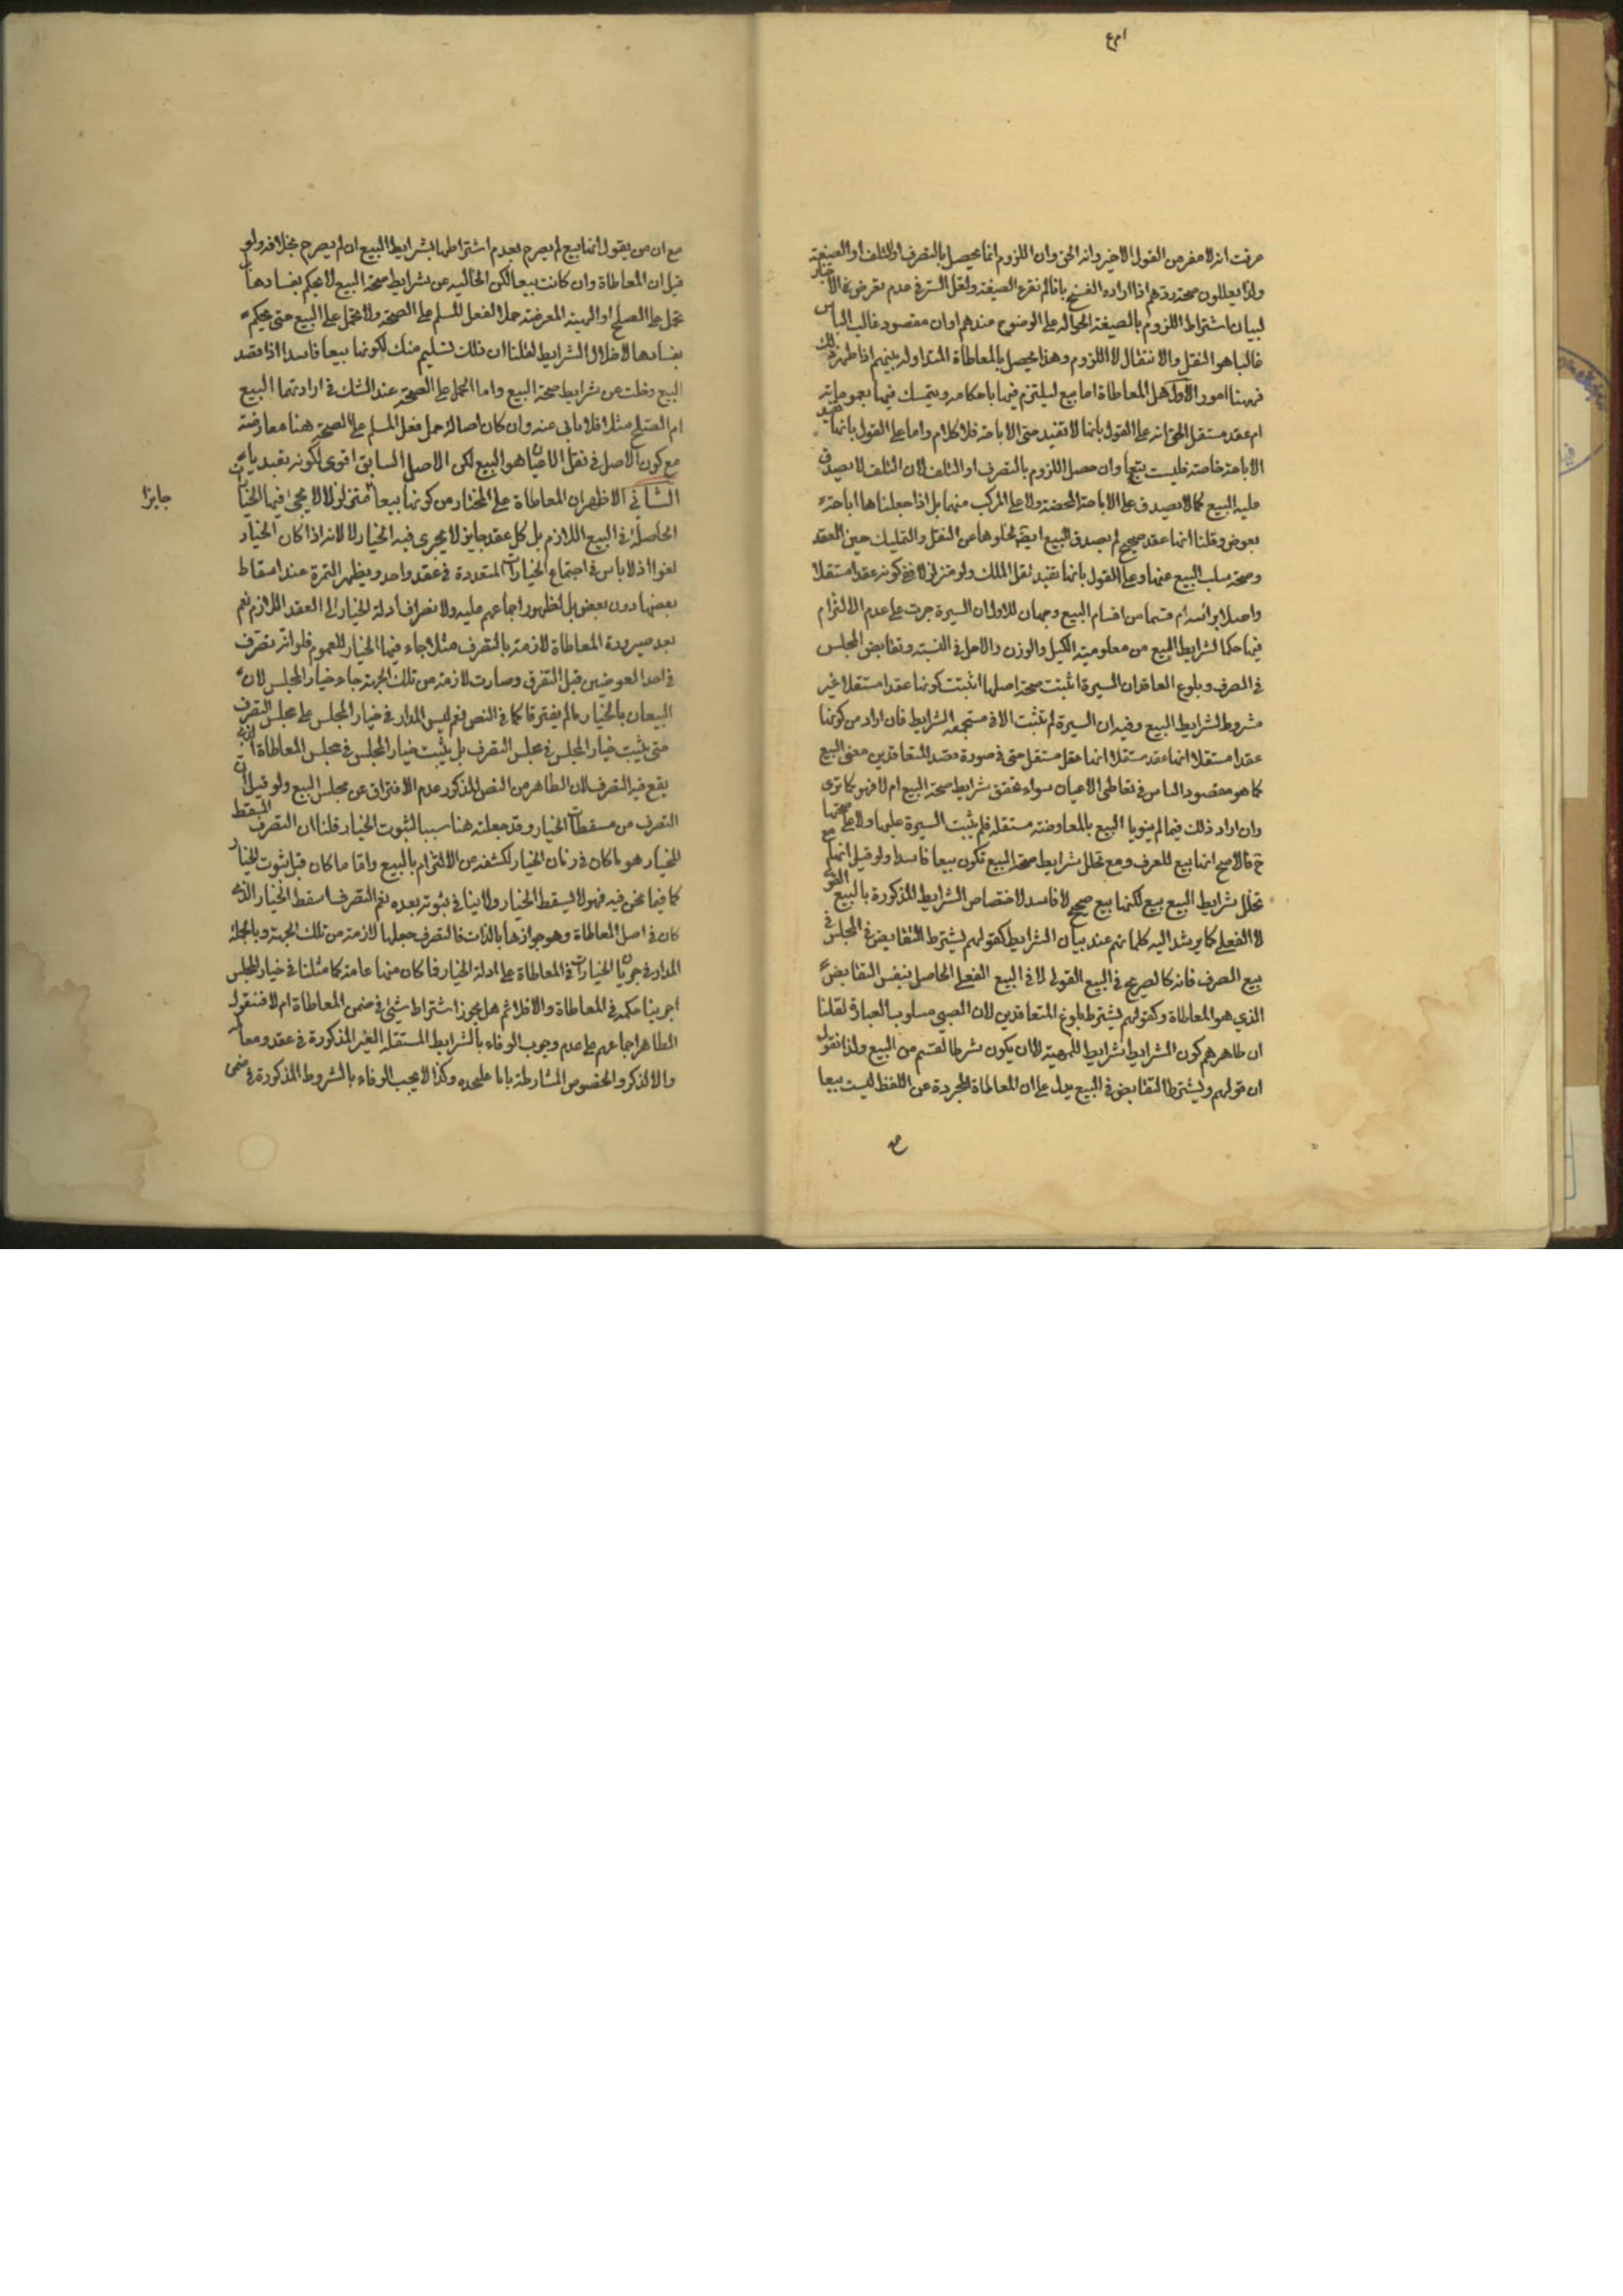 عرفت انه لا مفر من القول الاخير وانه الحق وان اللزوم انما يحصل بالتصرف او التلف او الصيغة
ولذا يعللون صحة ردهم اذا اراده الفسخ بانا لم نقرء الصيغة ولعل السر في عدم تعرض الاخبار
لبيان اشتراط اللزوم بالصيغة الحوالة على الوضوح عندهم او ان مقصود غالب الناس
غالبا هو النقل والانتقال لا اللزوم وهذا يحصل بالمعاطاة المتداولة بينهم اذا ظهر ذلك
فههنا امور الاول هل المعاطاة اما بيع ليلتزم فيها باحكامه ويتمسك فيها بعموماته
ام عقد مستقل الحق انه على القول بانها لا تفيد حتى الاباحة فلا كلام واما على القول بانها تفيد
الاباحة خاصة فليست ببيع وان حصل اللزوم بالتصرف او التلف لان التلف لا يصدق
عليه البيع كما لا يصدق على الاباحة المحضة ولا على المركب منهما بل اذا جعلناها اباحة
بعوض وقلنا انها عقد صحيح لم يصدق البيع ايضا لخلوها عن النقل والتمليك حين العقد
وصحة سلب البيع عنها وعلى القول بانها تفيد نقل الملك ولو متزلزلا ففي كونه عقدا مستقلا
واصلا برأسه ام قسما من اقسام البيع وجهان للاول ان السيرة جرت على عدم الالتزام
فيها حكما لشرايط المبيع من معلومية الكيل والوزن والاجل في النسية وتقابض المجلس
في الصرف وبلوغ العاقد ان السيرة اثبتت صحة اصلها اثبتت كونها عقدا مستقلا غير
مشروط لشرايط البيع وفيه ان السيرة لم تثبت الا في مستجمعة الشرايط فان اراد من كونها
عقدا مستقلا انها عقد مستقلا انها عقد مستقل حتى في صورة قصد المتعاقدين معنى البيع
كما هو مقصود الناس في تعاطي الاعيان سواء تحقق شرايط صحة البيع ام لا فهو كما ترى
وان اراد ذلك فيما لم ينويا البيع بالمعاوضة مستقلة فلم يثبت السيرة عليها ولا على صحتها
ح فالاصح انها بيع للعرف ومع تخلل شرايط صحة البيع تكون بيعا فاسدا ولو قيل انها مع
تخلل شرايط البيع بيع لكنها بيع صحيح لا فاسد لاختصاص الشرايط المذكورة بالبيع القولي
لا الفعلي كما يرشد اليه كلماتهم عند بيان الشرايط كقولهم يشترط التقابض في المجلس في
بيع الصرف فانه كالصريح في البيع القولي لا في البيع الفعلي الحاصل بنفس التقابض
الذي هو المعاطاة وكقولهم يشترط بلوغ المتعاقدين لان الصبي مسلوب العبارة لقلنا
ان ظاهرهم كون الشرايط شرايط للمهية لا ان يكون شرطا لقسم من البيع ولذا نقول
ان قولهم ويشترط التقابض في البيع يدل على ان المعاطاة المجردة عن اللفظ ليست بيعا
مع ان من يقول انها بيع لم يصرح بعدم اشتراطها بشرايط البيع ان لم يصرح بخلافه ولو
قيل ان المعاطاة وان كانت بيعا لكن الخالية عن شرايط صحة البيع لا يحكم بفسادها بل
تحمل على الصلح او الهبة المعوضة حملا لفعل المسلم على الصحة ولا تحمل على البيع حتى يحكم
بفسادها لاخلال الشرايط لقلنا ان ذلك تسليم منك لكونها بيعا فاسدا اذا قصد
البيع وخلت عن شرايط صحة البيع واما الحمل على الصحة عند الشك في ارادتهما البيع
ام الصلح مثلا فلا نابى عنه وان كان اصالة حمل فعل المسلم على الصحة هنا معارضة
مع كون الاصل في نقل الاعيان هو البيع لكن الاصل السابق اقوى لكونه تعبديا
الثاني الاظهر ان المعاطاة على المختار من كونها بيعا متزلزلا لا يجئ فيها الخيارات
جايزا
الحاصلة في البيع اللازم بل كل عقد جايز لا يجرى فيه الخيار لا لانه اذا كان الخيار
لغوا اذ لا باس في اجتماع الخيارات المتعددة في عقد واحد ويظهر الثمرة عند اسقاط
بعضها دون بعض بل لظهور اجماعهم عليه ولانصراف ادلة الخيار الى العقد اللازم نعم
بعد صيرورة المعاطاة لازمة بالتصرف مثلا جاء فيها الخيار للعموم فلو انه تصرف
في احد العوضين قبل التفرق وصارت لازمة من تلك الجهة جاء خيار المجلس لان
البيعان بالخيار ما لم يفترقا كما في النص نعم ليس المدار في خيار المجلس على مجلس التصرف
حتى يثبت خيار المجلس في مجلس التصرف بل يثبت خيار المجلس في مجلس المعاطاة الذي
يقع فيه التصرف لان الظاهر من النص المذكور عدم الافتراق عن مجلس البيع ولو قيل ان
التصرف من مسقطات الخيار وقد جعلته هنا سببا لثبوت الخيار قلنا ان التصرف المسقط
للخيار هو ما كان في زمان الخيار لكشفه عن الالتزام بالبيع واما ما كان قبل ثبوت الخيار
كما فيما نحن فيه فهو لا يسقط الخيار ولا ينافي ثبوته بعده نعم التصرف اسقط الخيار الذي
كان في اصل المعاطاة وهو جوازها بالذات فالتصرف جعلها لازمة من تلك الجهة وبالجملة
المدار في جريان الخيارات في المعاطاة على ادلة الخيار فما كان منها عامة كما مثلنا في خيار المجلس
اجرينا حكمه في المعاطاة والا فلا ثم هل يجوز اشتراط شيئ في ضمن المعاطاة ام لا فنقول
الظاهر اجماعهم على عدم وجوب الوفاء بالشرايط المستقلة الغير المذكورة في عقد ومعا
والا لذكروا لخصوص المشارطة بابا عليحده وكذا لا يجب الوفاء بالشروط المذكورة في ضمن